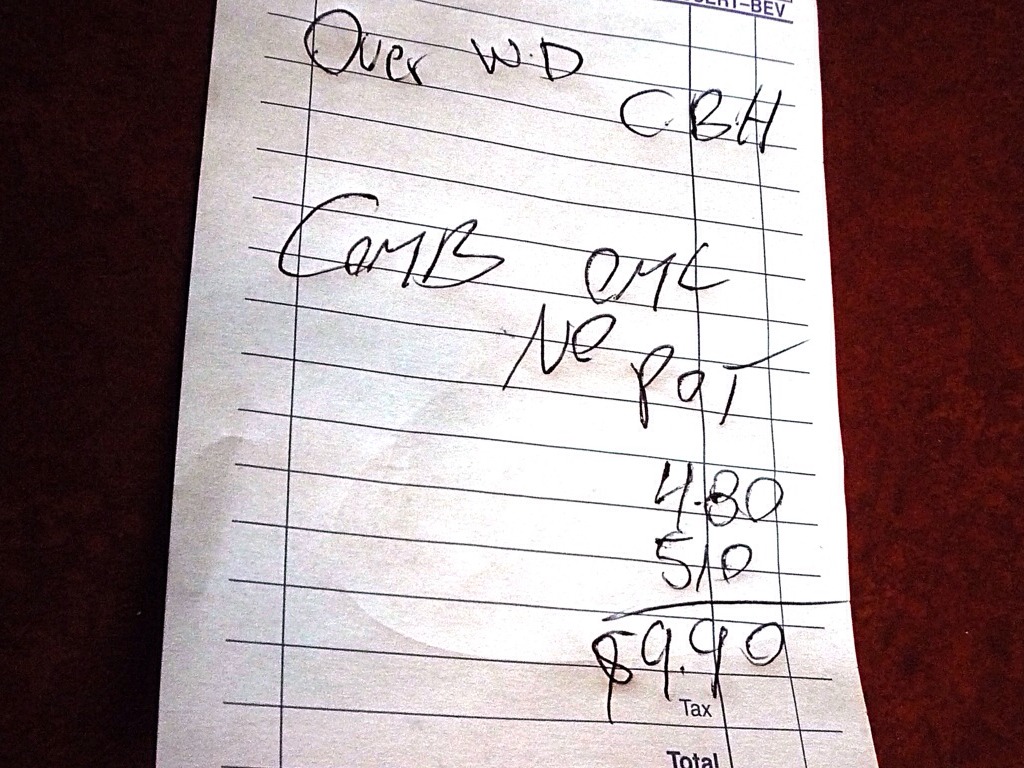 Over W.D
CBH
ComB omL
No
PoT
4.80
5.10
$9.90
Tax
Total